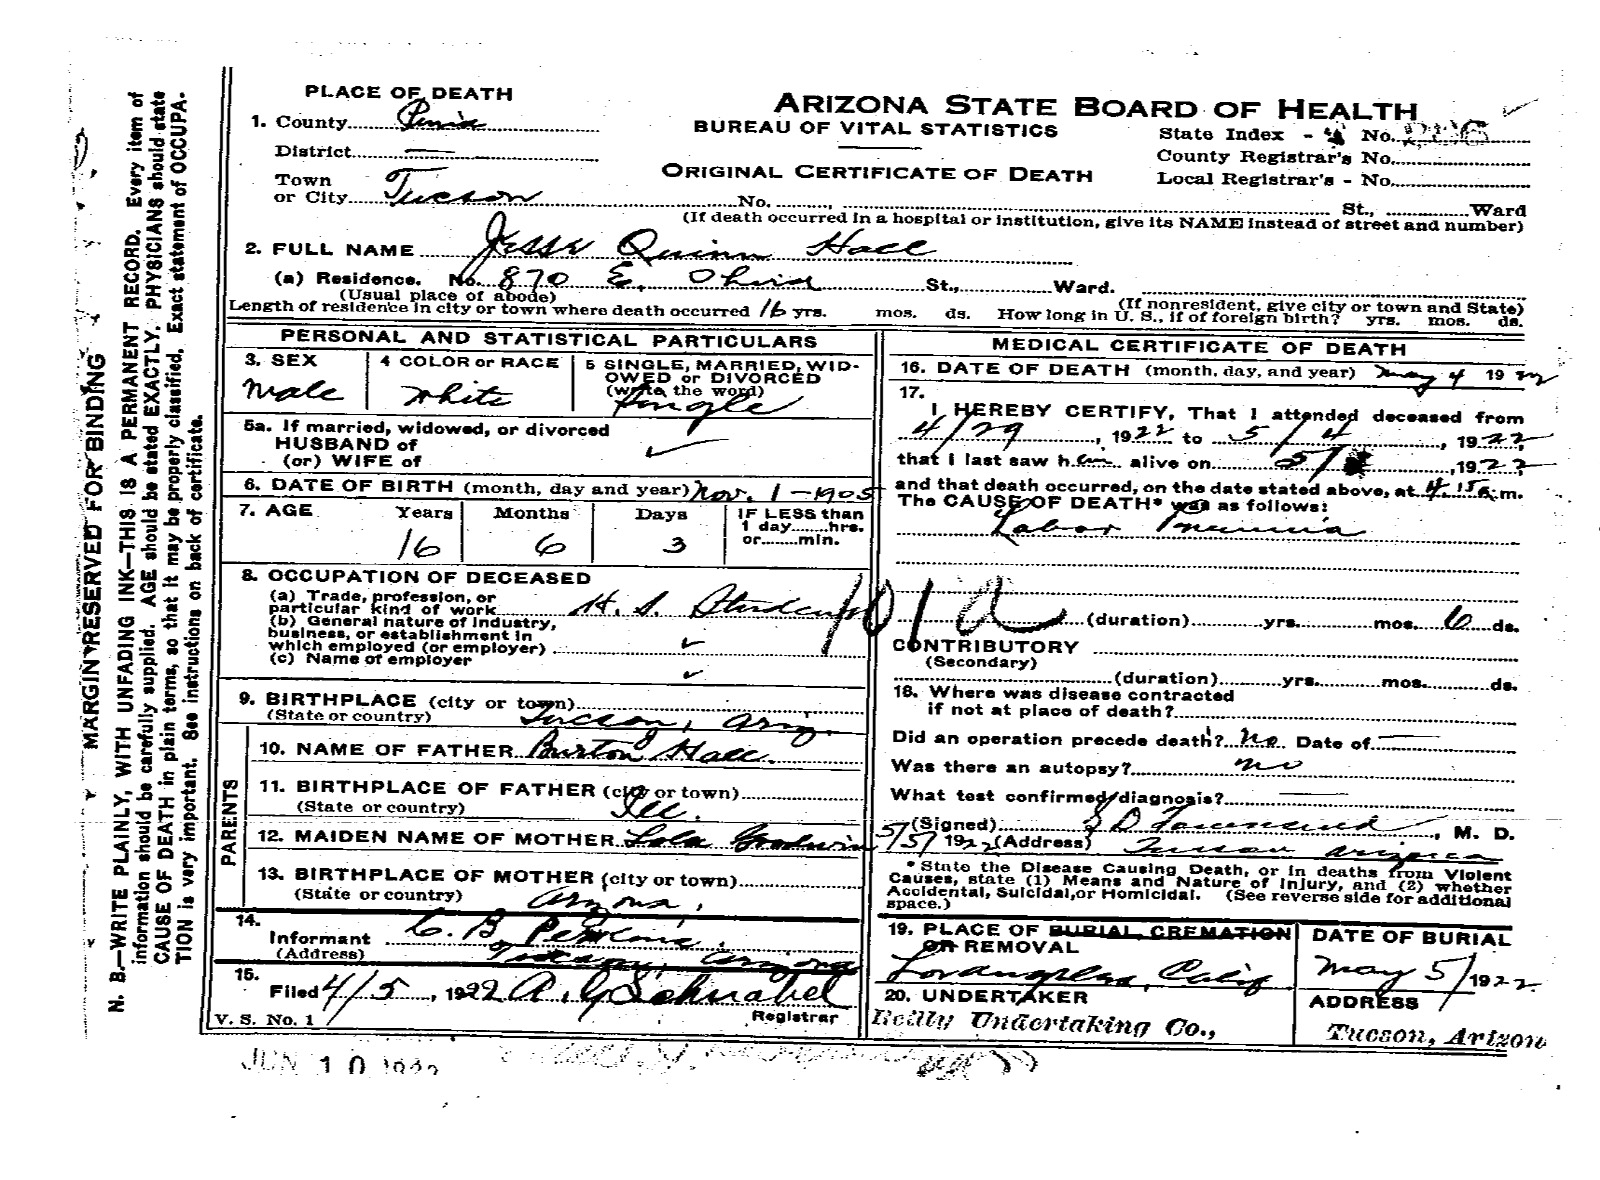 MARGIN RESERVED FOR BINDING
N. B.—WRITE PLAINLY, WITH UNFADING INK—THIS IS A PERMANENT RECORD. Every item of
information should be carefully supplied. AGE should be stated EXACTLY. PHYSICIANS should state
CAUSE OF DEATH in plain terms, so that it may be properly classified. Exact statement of OCCUPA-
TION is very important. See instructions on back of certificate.
PLACE OF DEATH
ARIZONA STATE BOARD OF HEALTH
1. County Pima
BUREAU OF VITAL STATISTICS
State Index - No.
District —
County Registrar's No.
ORIGINAL CERTIFICATE OF DEATH
Local Registrar's - No.
Town
or City Tucson No. St., Ward
(If death occurred in a hospital or institution, give its NAME instead of street and number)
2. FULL NAME Jesse Quinn Hall
(a) Residence. No. 870 E. St., Ward.
(Usual place of abode) (If nonresident, give city or town and State)
Length of residence in city or town where death occurred 16 yrs. mos. ds. How long in U. S., if of foreign birth? yrs. mos. ds.
PERSONAL AND STATISTICAL PARTICULARS
3. SEX 4 COLOR or RACE 5 SINGLE, MARRIED, WID-
OWED or DIVORCED
(write the word)
Male White Single
5a. If married, widowed, or divorced
HUSBAND of
(or) WIFE of
6. DATE OF BIRTH (month, day and year) Nov. 1-1905
7. AGE Years Months Days IF LESS than
1 day hrs.
or min.
16 6 3
8. OCCUPATION OF DECEASED
(a) Trade, profession, or
particular kind of work H. S. Student
(b) General nature of industry,
business, or establishment in
which employed (or employer)
(c) Name of employer
9. BIRTHPLACE (city or town)
(State or country) Tucson, Ariz.
PARENTS
10. NAME OF FATHER Burton Hall.
11. BIRTHPLACE OF FATHER (city or town)
(State or country) Ill.
12. MAIDEN NAME OF MOTHER Lola Goodwin
13. BIRTHPLACE OF MOTHER (city or town)
(State or country) Arizona.
14.
Informant C. B. Perkins.
(Address) Tucson, Arizona
15.
Filed 4/5, 1922 A. G. Schnabel
Registrar
V. S. No. 1
MEDICAL CERTIFICATE OF DEATH
16. DATE OF DEATH (month, day, and year) May 4 1922
17.
I HEREBY CERTIFY, That I attended deceased from
4/29, 1922 to 5/4, 1922
that I last saw him alive on 5/ , 1922
and that death occurred, on the date stated above, at 4 15a m.
The CAUSE OF DEATH* was as follows:
Labor Pneumia
101a
(duration) yrs. mos. 6 ds.
CONTRIBUTORY
(Secondary)
(duration) yrs. mos. ds.
18. Where was disease contracted
if not at place of death?
Did an operation precede death? no Date of —
Was there an autopsy? no
What test confirmed diagnosis? —
(Signed) D Townsend, M. D.
5/5/ 1922 (Address) Tucson Arizona
* State the Disease Causing Death, or in deaths from Violent
Causes, state (1) Means and Nature of Injury, and (2) whether
Accidental, Suicidal, or Homicidal. (See reverse side for additional
space.)
19. PLACE OF BURIAL, CREMATION
OR REMOVAL
Los Angeles, Calif.
DATE OF BURIAL
May 5/1922
20. UNDERTAKER
Reilly Undertaking Co.,
ADDRESS
Tucson, Arizon
JUN 10 1922